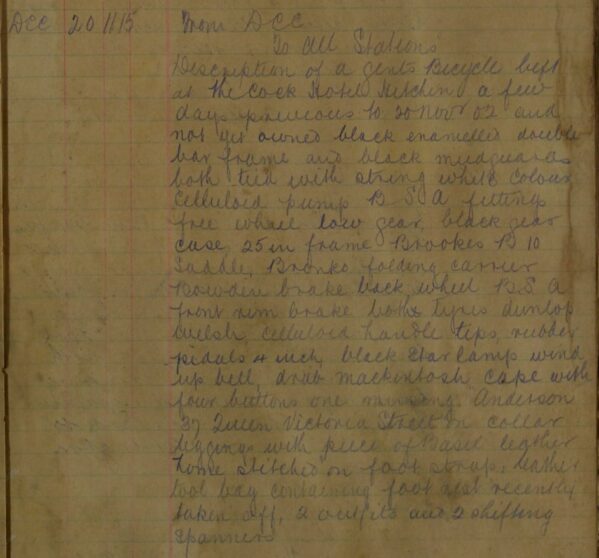 Dec 20 1115 From D.C.C.
To All Stations
Description of a gents Bicycle left
at the Cock Hotel Hitchin a few
days previous to 20 Novr 02 and
not yet owned black enamelled double
bar frame and black mudguards
both tied with string white colour
celluloid pump B S A fittings
free wheel low gear, black gear
case, 25 in frame Brookes B 10
Saddle, Bronko folding carrier
Bowden brake back wheel B.S A
front rim brake both tyres dunlop
welsh, celluloid handle tips, rubber
pedals 4 inch, black Star Lamp wind
up bell, drab mackintosh cape with
four buttons one missing. Anderson
37 Queen Victoria Street in collar
leggings with piece of leather
home stitched on foot strap, leather
tool bag containing foot rest recently
taken off, 2 outfits and 2 shifting
spanners